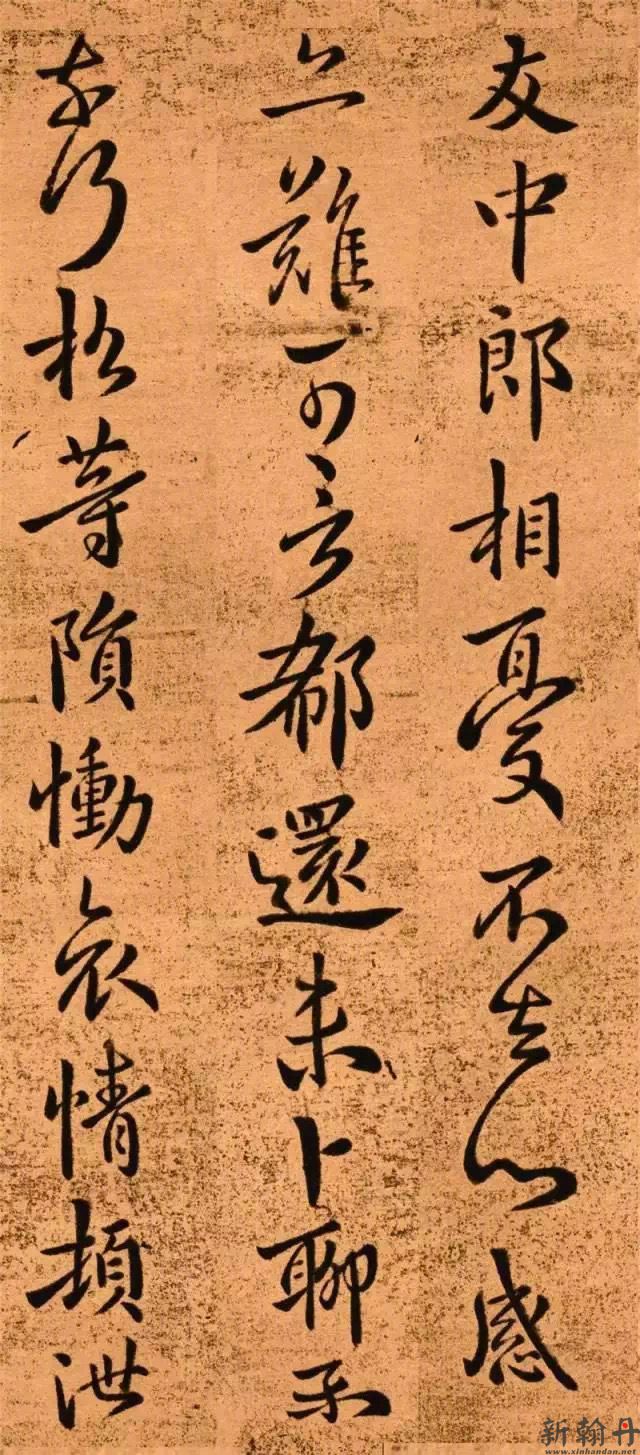 友中郎相憂不去心感
亦難可言郗還未卜聊示
行松等隕慟哀情頓泄
新翰丹
www.xinhandan.net